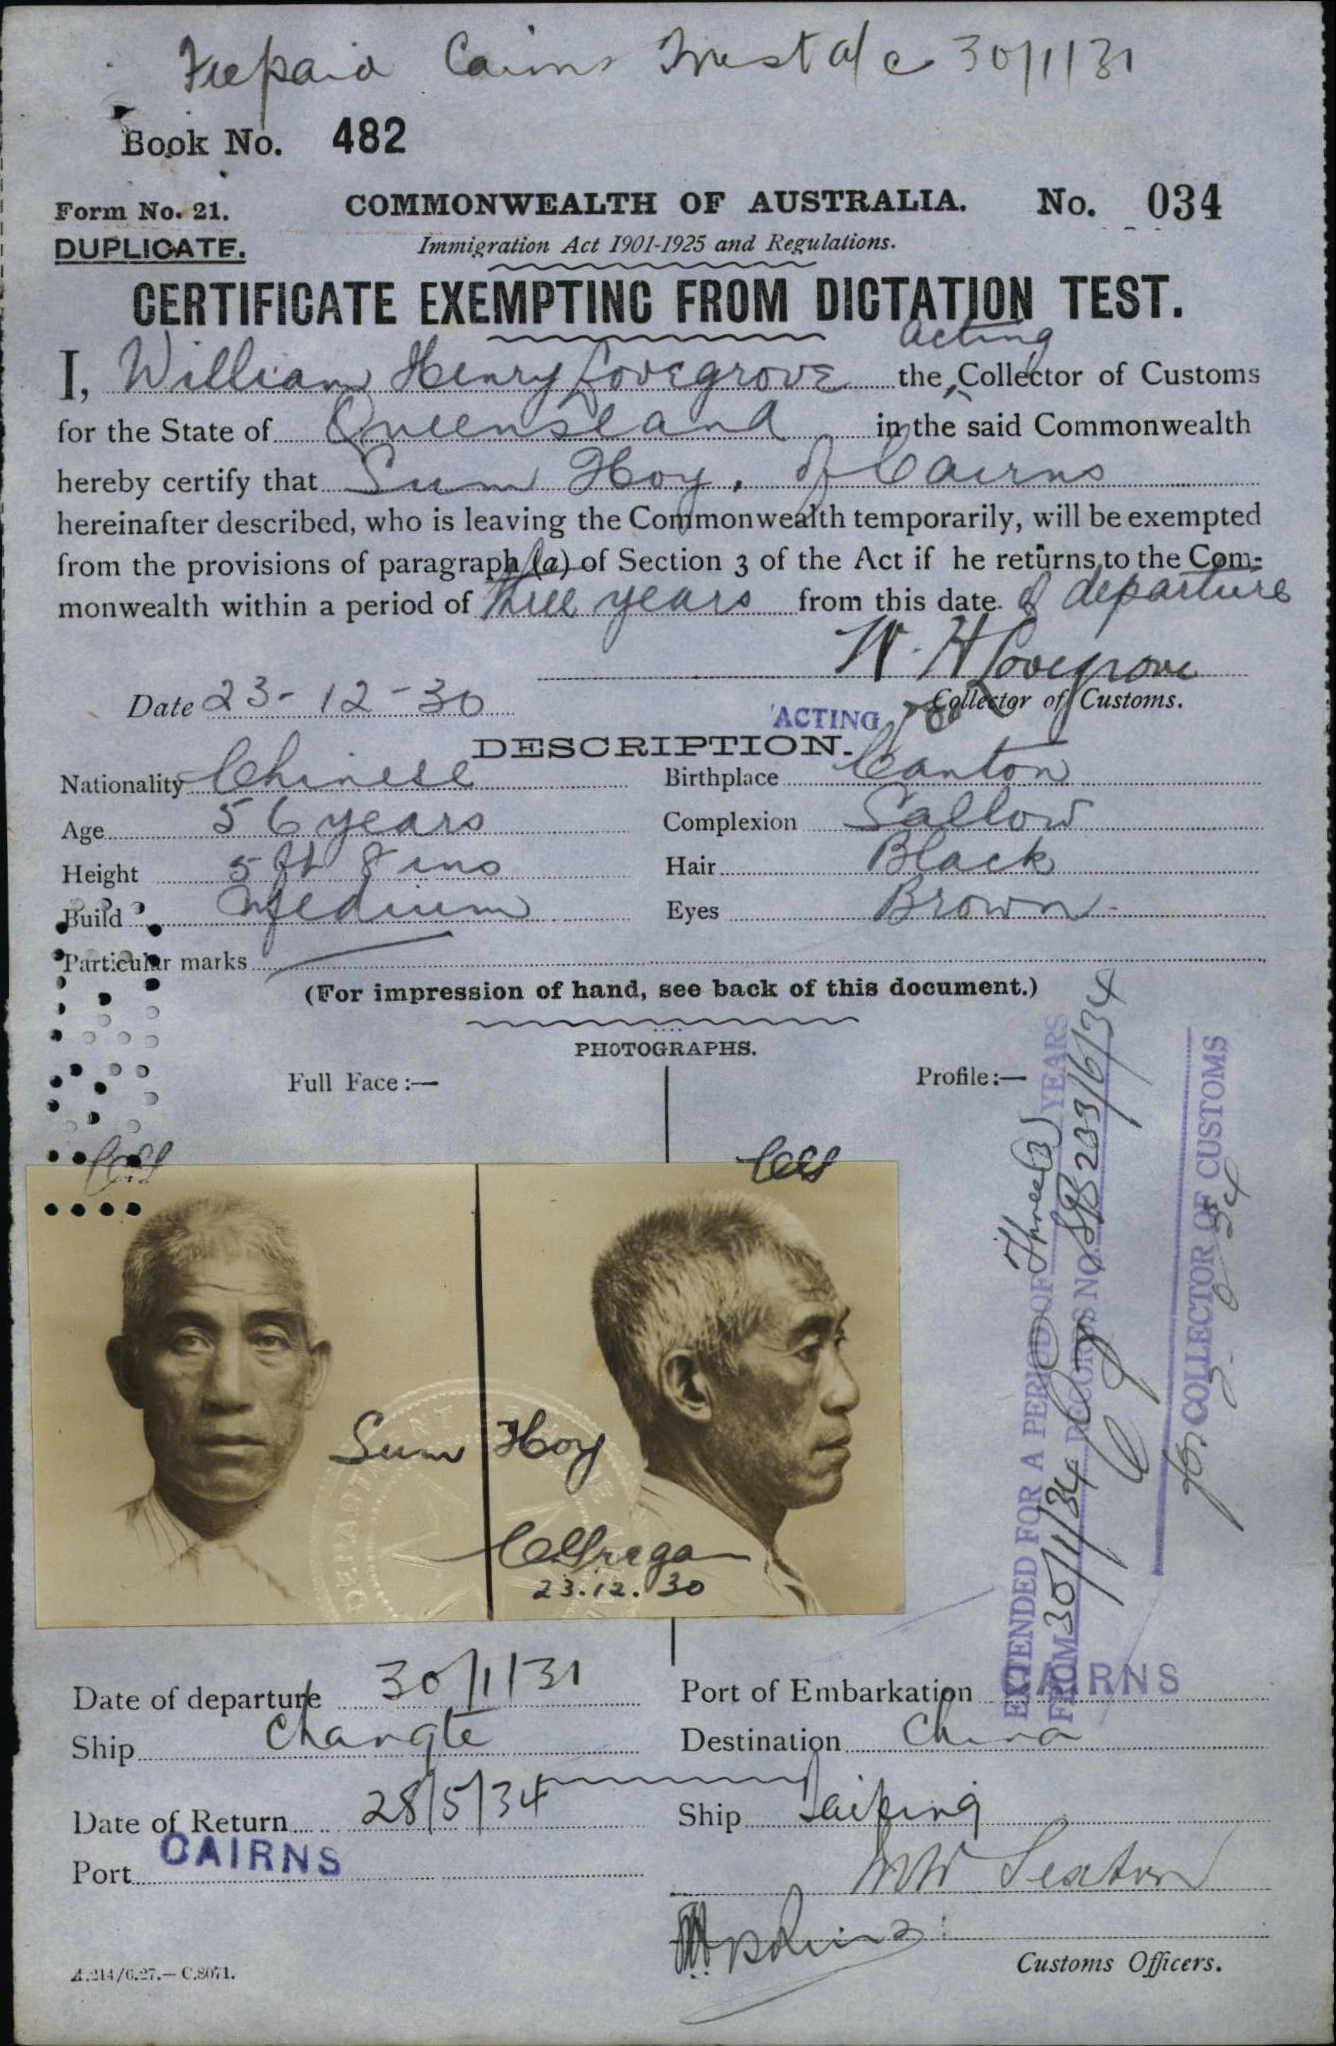 Prepaid Cairns Trust a/c 30/1/31
Book No. 482
Form No. 21. COMMONWEALTH OF AUSTRALIA. No. 034
DUPLICATE. Immigration Act 1901-1925 and Regulations.
CERTIFICATE EXEMPTING FROM DICTATION TEST.
acting
I, William Henry Lovegrove the Collector of Customs
for the State of Queensland in the said Commonwealth
hereby certify that Sum Hoy, of Cairns
hereinafter described, who is leaving the Commonwealth temporarily, will be exempted
from the provisions of paragraph (a) of Section 3 of the Act if he returns to the Com-
monwealth within a period of three years from this date of departure
W. H Lovegrove
Date 23-12-30 ACTING Collector of Customs.
DESCRIPTION.
Nationality Chinese Birthplace Canton
Age 56 years Complexion Sallow
Height 5 ft 8 ins Hair Black
Build Medium Eyes Brown
Particular marks
(For impression of hand, see back of this document.)
PHOTOGRAPHS.
Full Face:— Profile:—
Sum Hoy
23.12.30
EXTENDED FOR A PERIOD OF Three (3) YEARS
FROM 30/1/34 RECORDS NO. 233/6/34
for COLLECTOR OF CUSTOMS
Date of departure 30/1/31 Port of Embarkation CAIRNS
Ship Changte Destination China
Date of Return 28/5/34 Ship Taiping
Port CAIRNS
Customs Officers.
A.214/6.27.—C.8071.